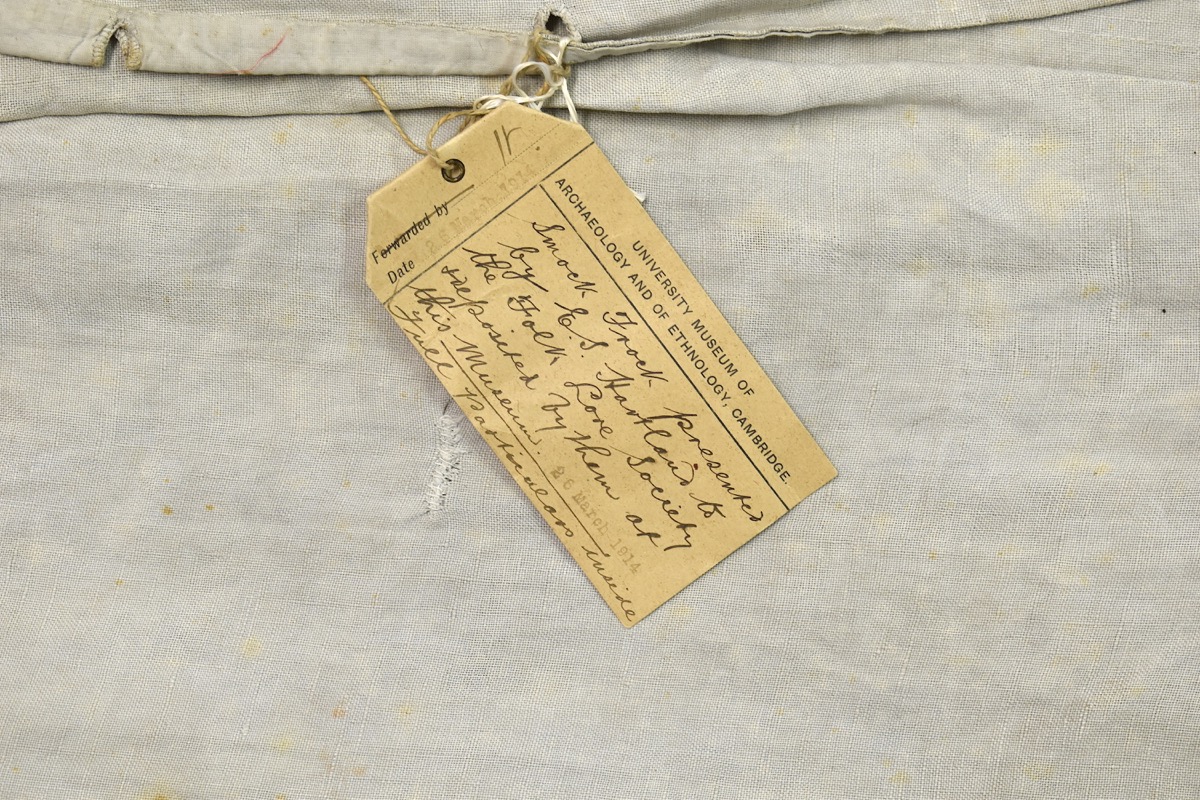 UNIVERSITY MUSEUM OF
ARCHAEOLOGY AND OF ETHNOLOGY, CAMBRIDGE.
Forwarded by
Date 25 March 1914
Smock Frock presented
by E. S. Hartland to
the Folk Lore Society
deposited by them at
this Museum. 26 March 1914
Full particulars inside